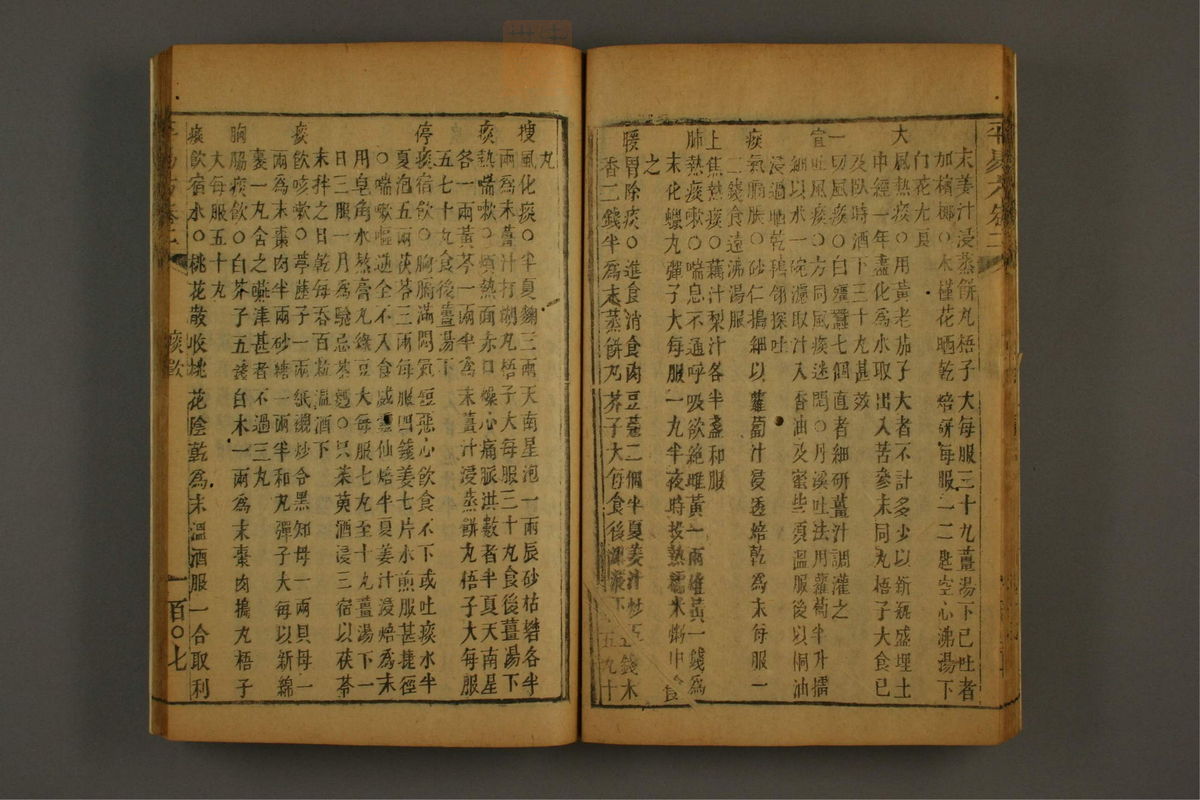 末姜汁浸蒸餅丸梧子大每服三十丸薑湯下已吐者
加檳榔○木槿花晒乾焙研每服一二匙空心沸湯下
白花尤良
大風熱痰○用黃老茄子大者不計多少以新瓶盛埋土
中經一年盡化爲水取出入苦參末同丸梧子大食已
及臥時酒下三十丸甚效
一切風痰○白殭蠶七個直者細研薑汁調灌之
宜吐風痰○方同風痰迷悶○丹溪吐法用蘿蔔半升擂
細以水一碗濾取汁入香油及蜜些須溫服後以桐油
浸過晒乾鵝翎探吐
痰氣膈脹○砂仁搗細以蘿蔔汁浸透焙乾爲末每服一
二錢食遠沸湯服
上焦熱痰○藕汁梨汁各半盞和服
肺熱痰嗽○喘息不通呼吸欲絕雌黃一兩雄黃一錢爲
末化蠟丸彈子大每服一丸半夜時投熱糯米粥中食
之
暖胃除痰○進食消食肉豆蔻二個半夏姜汁炒五錢木
香二錢半爲末蒸餅丸芥子大每食後下五九十
丸
瘦風化痰○半夏麯三兩天南星泡一兩辰砂枯礬各半
兩爲末薑汁打糊丸梧子大每服三十丸食後薑湯下
痰熱喘嗽○煩熱面赤口燥心痛脈洪數者半夏天南星
各一兩黃芩一兩半爲末薑汁浸蒸餅丸梧子大每服
五七十丸食後薑湯下
停痰宿飲○胸膈滿悶氣短惡心飲食不下或吐痰水半
夏泡五兩茯苓三兩每服四錢姜七片水煎服甚捷徑
○喘嗽嘔逆全不入食威靈仙焙半夏姜汁浸焙爲末
用皂角水熬膏丸綠豆大每服七丸至十丸薑湯下一
日三服一月爲驗忌茶麪○只茱萸酒浸三宿以茯苓
末拌之日乾每吞百粒溫酒下
痰飲咳嗽○葶藶子一兩紙襯炒令黑知母一兩貝母一
兩爲末棗肉半兩砂糖一兩半和丸彈子大每以新綿
裹一丸含之嚥津甚者不過三丸
胸腸痰飲○白芥子五錢白朮一兩爲末棗肉搗丸梧子
大每服五十丸
痰飲宿水○桃花散收桃花陰乾爲末溫酒服一合取利
痰飲
一百○七